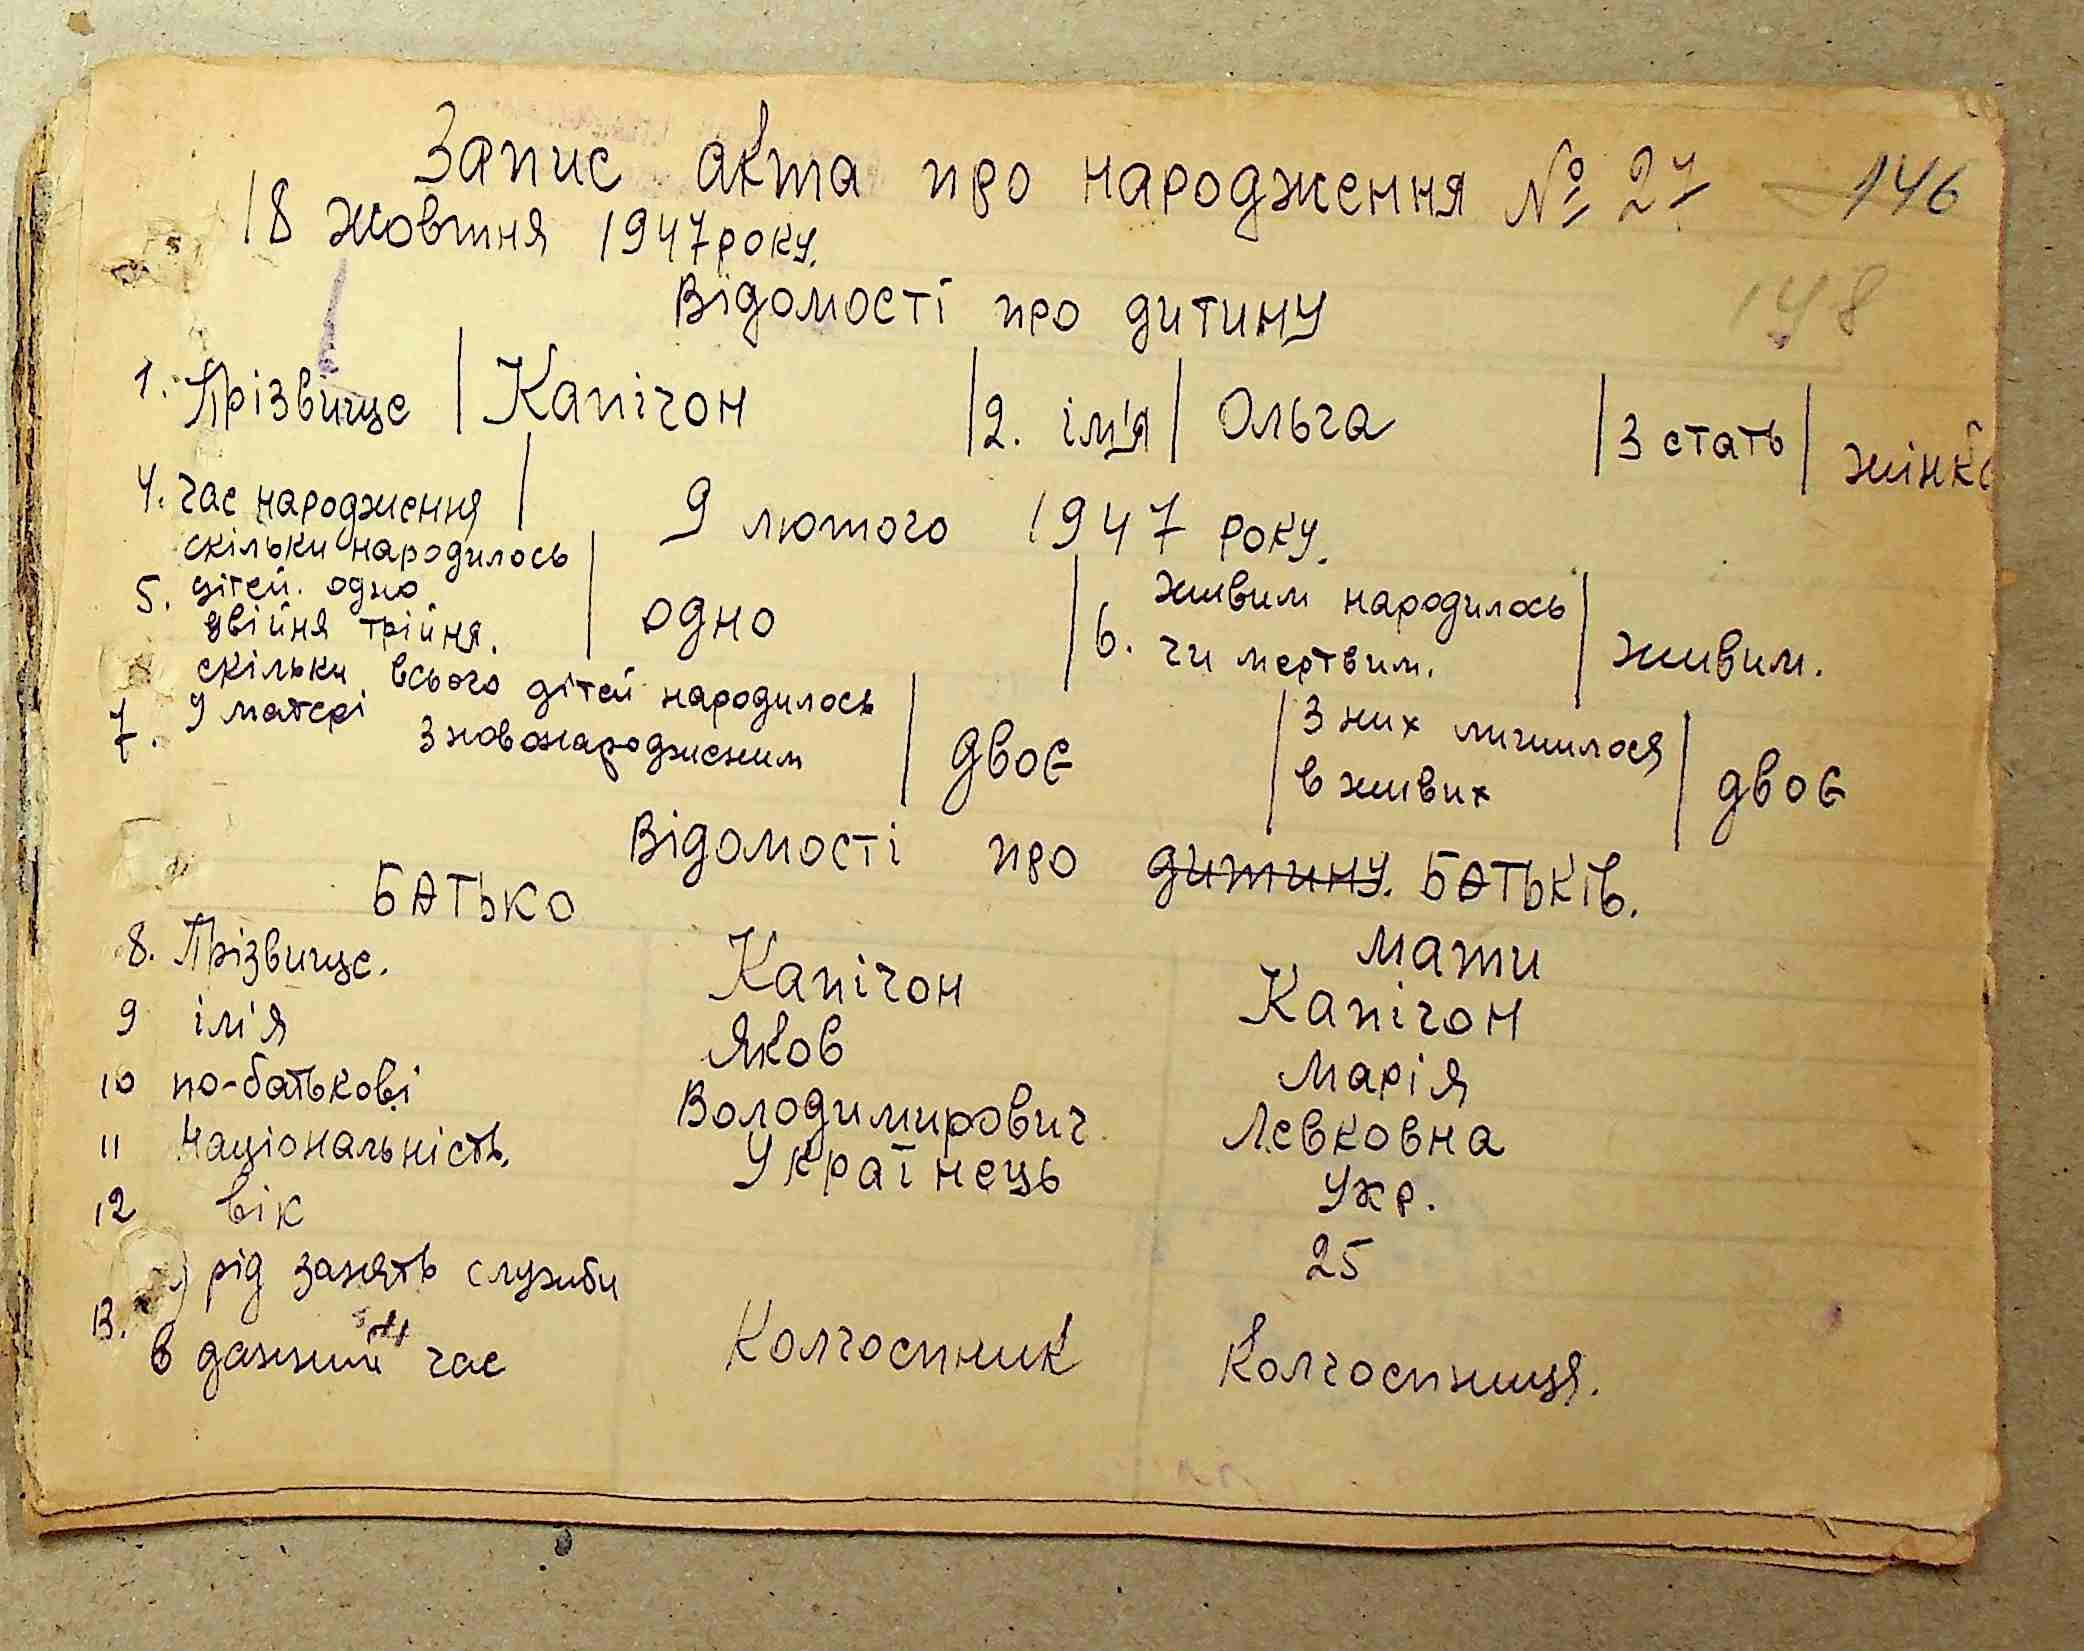 Запис акта про народження № 27 146
18 жовтня 1947 року.
148
Відомості про дитину
1. Прізвище | Капігон | 2. ім'я | Ольга | 3 стать | жінка
4. час народження | 9 лютого 1947 року.
5. скільки народилось дітей. одно двійня трійня. | одно | 6. живим народилось чи мертвим. | живим.
7. скільки всього дітей народилось у матері з новонародженим | двоє | З них лишилося в живих | двоє
Відомості про дитину. БАТЬКІВ.
БАТЬКО мати
8. Прізвище. Капігон Капігон
9 ім'я Яков Марія
10 по-батькові Володимирович Левковна
11 Національність. Українець Укр.
12 вік 25
13. рід занять служби
в данний час Колгоспник Колгоспниця.